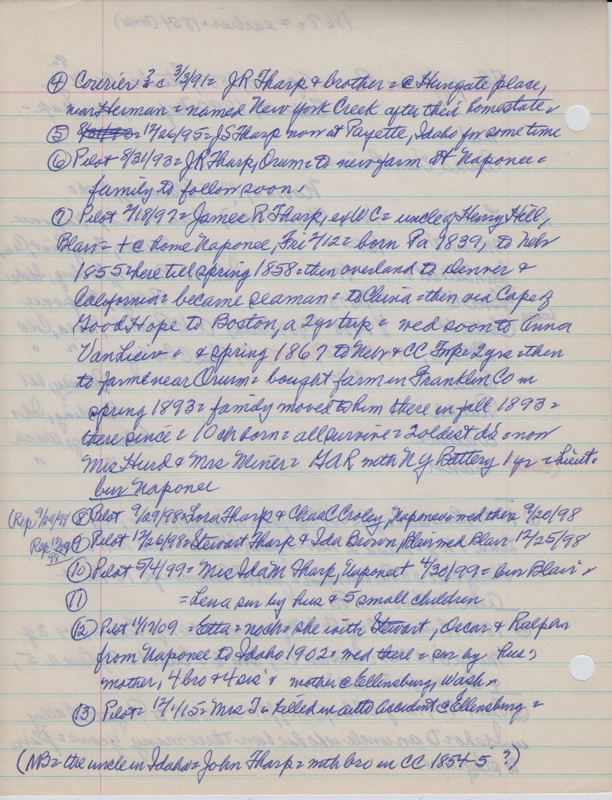 ④ Courier ?c 3/3/91 = J R Tharp & brother = @ Hungate place,
near Herman = named New York Creek after their homestate =
⑤ 12/26/95 = J S Tharp now at Payette, Idaho for some time
⑥ Pilot 8/31/93 = J R Tharp, Orum = to new farm at Naponee =
family to follow soon,
⑦ Pilot 2/18/97 = James R Tharp, ex WC = uncle of Henry Hill,
Blair = + @ home Naponee, Fri 2/12 = born Pa 1839, to Neb
1855 = here till spring 1858 = then overland to Denver &
California = became seaman = to China = then via Cape of
Good Hope to Boston, a 2 yr trip = wed soon to Anna
VanLieiv = & spring 1867 to Neb & CC Twp = 2 yrs = then
to farm near Orum = bought farm in Franklin Co in
spring 1893 = family moved to him there in fall 1893 =
there since = 10 ch born = all survive = 2 oldest ds = now
Mrs Hurd & Mrs Miner = GAR with NY Battery 1 yr = Lieut.
bur Naponee
(Rep 9/29/98 ⑧ Pilot 9/29/98 = Lora Tharp & Chas C Croley, Naponee = wed there 9/20/98
Rep 12/29/98 ⑨ Pilot 12/26/98 = Stewart Tharp & Ida Brown, Blair wed Blair 12/25/98
⑩ Pilot 5/4/99 = Mrs Ida M Tharp, Naponee + 4/30/99 = bur Blair =
⑪ = Lena sur by hus & 5 small children
⑫ Pilot 11/17/09 = Etta = = she with Stewart, Oscar & Ralph
from Naponee to Idaho 1902 = wed there = sur by hus,
mother, 4 bro & 4 sis = mother @ Ellensburg, Wash =
⑬ Pilot = 12/1/15 = Mrs T = killed in auto accident @ Ellensburg =
(NB = the uncle in Idaho = John Tharp = with bro in CC 1854-5 ?)